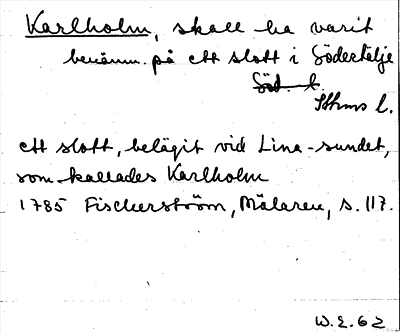 Karlholm, skall ha varit
benämn. på ett slott i Södertälje
Söd. l.
Sthms l.
ett slott, belägit vid Lina-sundet,
som kallades Karlholm
1785 Fischerström, Mälaren, s. 117.
W.E. 62